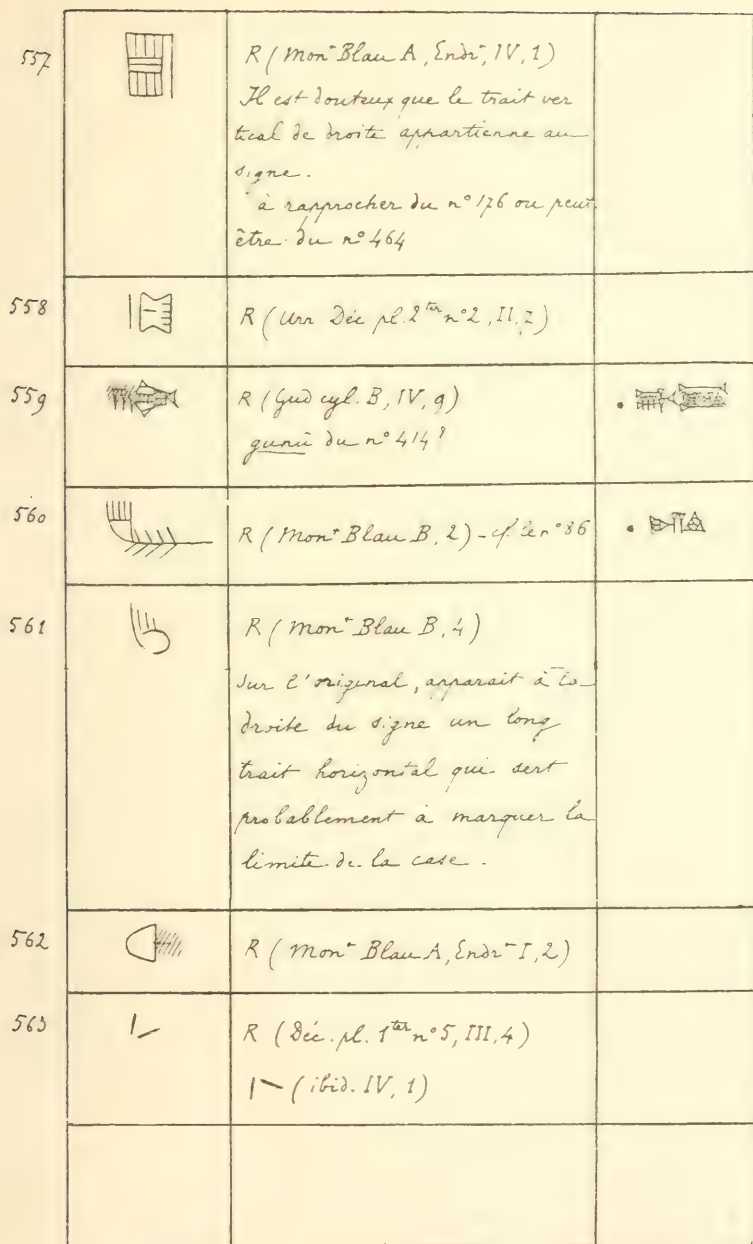 557 R (Mont Blau A, Endrt, IV, 1)
Il est douteux que le trait ver
tical de droite appartienne au
signe.
à rapprocher du n° 176 ou peut-
être du n° 464
558 R (Urn Déc pl. 2ter n° 2, II, 2)
559 R (Gud cyl. B, IV, 9)
gunû du n° 414?
560 R (Mont Blau B, 2) - cf. le n° 86
561 R (Mont Blau B, 4)
Sur l'original, apparait à la
droite du signe un long
trait horizontal qui sert
probablement à marquer la
limite de la case.
562 R (Mont Blau A, Endrt I, 2)
563 R (Déc. pl. 1ter n° 5, III, 4)
(ibid. IV, 1)